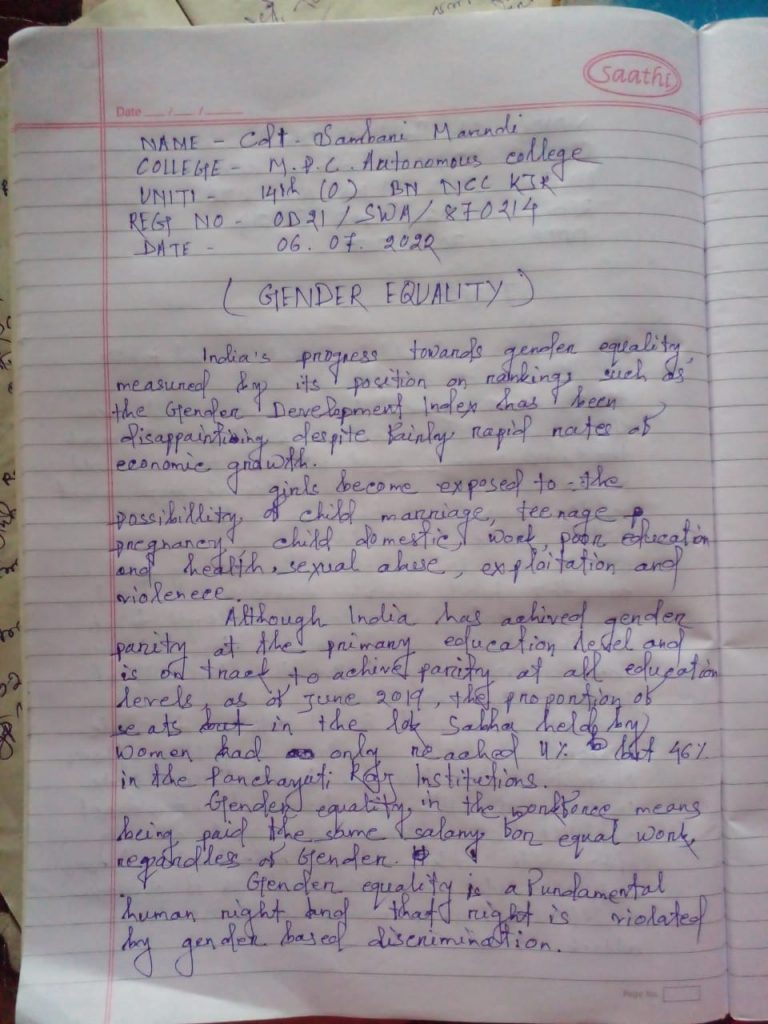 Saathi
Date / /
NAME - Cdt. Sambani Marndi
COLLEGE - M.P.C. Autonomous college
UNIT - 14th (O) BN NCC KJR
REGT NO - OD21/SWA/870214
DATE - 06.07.2022
(GENDER EQUALITY)
India's progress towards gender equality,
measured by its position on rankings such as
the Gender Development Index has been
disappainting, despite fairly rapid rates of
economic growth.
girls become exposed to the
possibillity of child marriage, teenage
pregnancy, child domestic work, poor education
and health, sexual abuse, exploitation and
violenece.
Although India has achived gender
parity at the primary education level and
is on tract to achive parity at all education
levels, as of June 2019, the proportion of
seats but in the lok Sabha held by
women had only reached 11% but 46%
in the Panchayati Raj Institutions.
Gender equality in the workforce means
being paid the same salary for equal work,
regardless of Gender.
Gender equality is a Fundamental
human right and that right is violated
by gender based discrimination.
Page No.